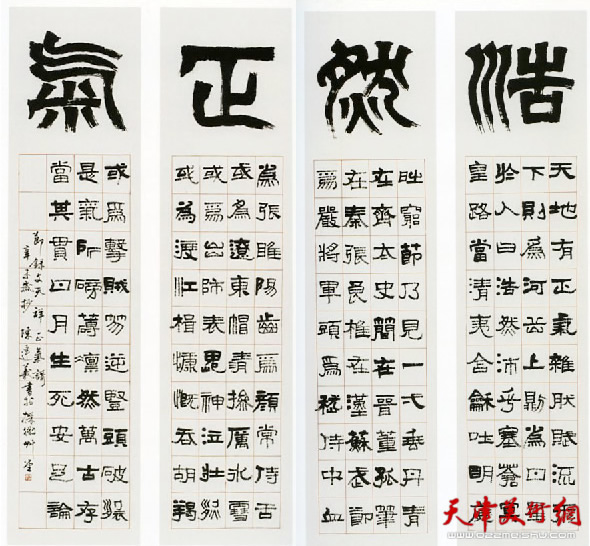 浩然正氣
天地有正氣雜然賦流形
下則爲河岳上則爲日星
於人曰浩然沛乎塞蒼冥
皇路當清夷含龢吐明庭
時窮節乃見一一垂丹青
在齊太史簡在晉董狐筆
在秦張良椎在漢蘇武節
爲嚴將軍頭爲嵇侍中血
爲張睢陽齒爲顏常侍舌
或爲遼東帽清操厲冰雪
或爲出師表鬼神泣壯烈
或為渡江楫慷慨吞胡羯
或爲擊賊笏逆豎頭破裂
是氣所磅礴凜然萬古存
當其貫日月生死安足論
節錄文天祥正氣謌
天津美术网